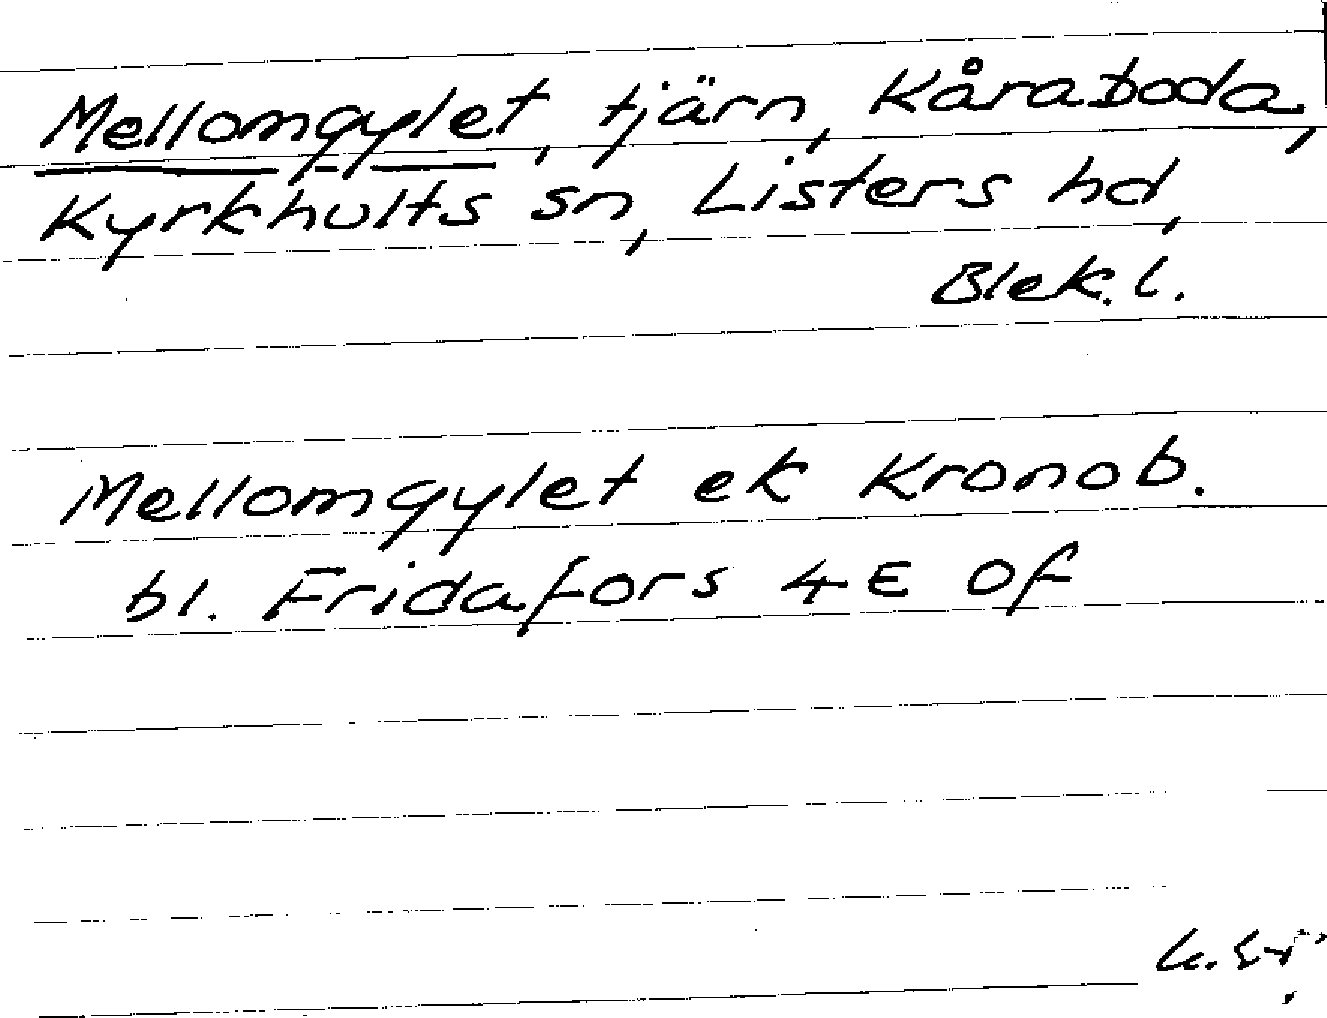 Mellomgylet, tjärn, Kåraboda,
Kyrkhults sn, Listers hd,
Blek. l.
Mellomgylet ek Kronob.
bl. Fridafors 4E 0f